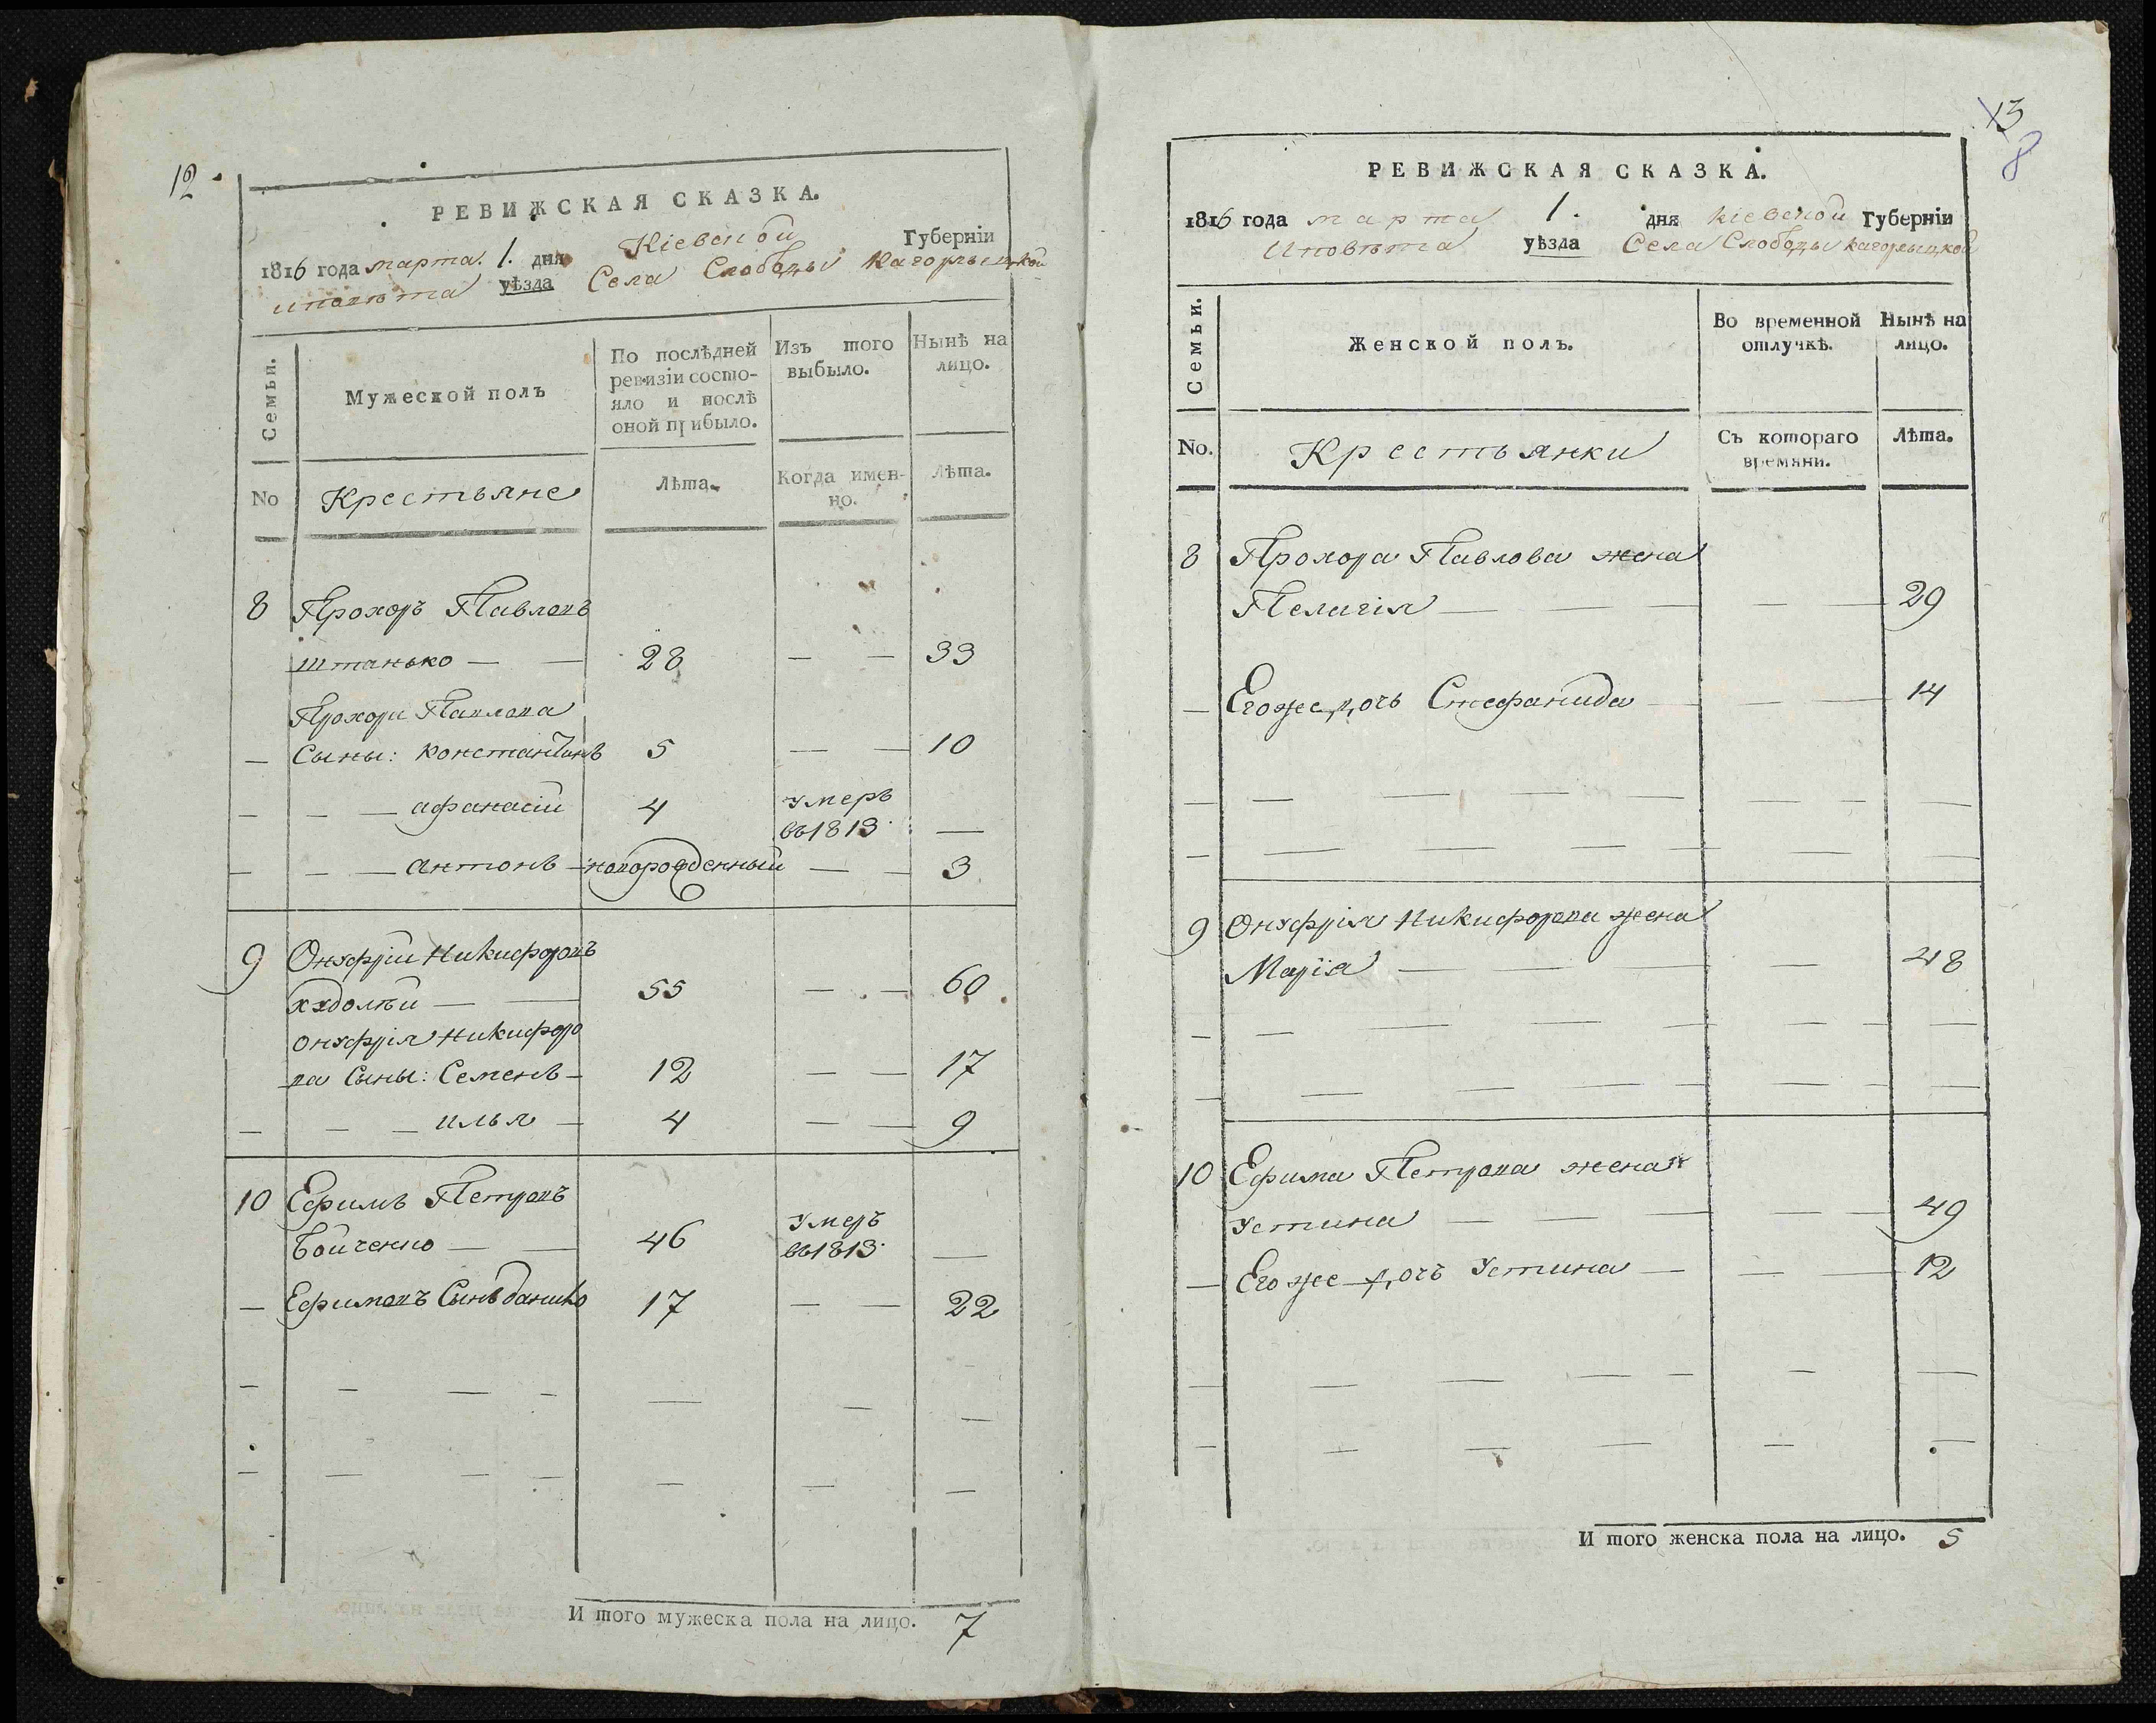 12
РЕВИЖСКАЯ СКАЗКА.
1816 года марта 1. дня Кіевской Губерніи
уѣзда Села Слободы Кагорлыцкой
Семьи.
Мужеской полъ
По послѣдней ревизіи состо-
яло и послѣ
оной прибыло.
Изъ того
выбыло.
Нынѣ на
лицо.
No
Крестьяне
Лѣта.
Когда имен-
но.
Лѣта.
8 Прохоръ Павловъ
штанько — — 28 — — 33
Прохора Павлова
— Сыны: Константинъ 5 — — 10
— — — афанасій 4 умеръ
въ 1813. —
— — — антонъ — новорожденный — — 3
9 Онуфрій Никифоровъ
— — 55 — — 60
онуфрія Никифоро
ва Сыны: Семенъ — 12 — — 17
— — — илья — 4 — — 9
10 Ефимъ Петровъ
бойченко — — 46 умеръ
въ 1813. —
— Ефимовъ Сынъ данило 17 — — 22
И того мужеска пола на лицо. 7
13
8
РЕВИЖСКАЯ СКАЗКА.
1816 года марта 1. дня кіевской Губерніи
уѣзда Села Слободы кагорлыцкой
Семьи.
Женской полъ.
Во временной
отлучкѣ.
Нынѣ на
лицо.
No.
Крестьянки
Съ котораго
времяни.
Лѣта.
8 Прохора Павлова жена
Пелагія — — — — — 29
— Егожъ дочь Стефанида — — — 14
9 Онуфрія Никифорова жена
Марія — — — — 48
10 Ефима Петрова жена
устина — — — — — 49
— Его же дочь устина — — — 12
И того женска пола на лицо. 5